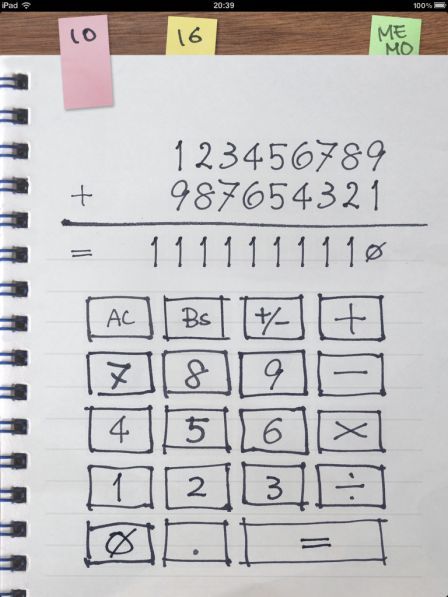 iPad 20:39 100%
10 16 MEMO
123456789
+ 987654321
= 1111111110
AC BS +/- +
7 8 9 −
4 5 6 ×
1 2 3 ÷
0 . =